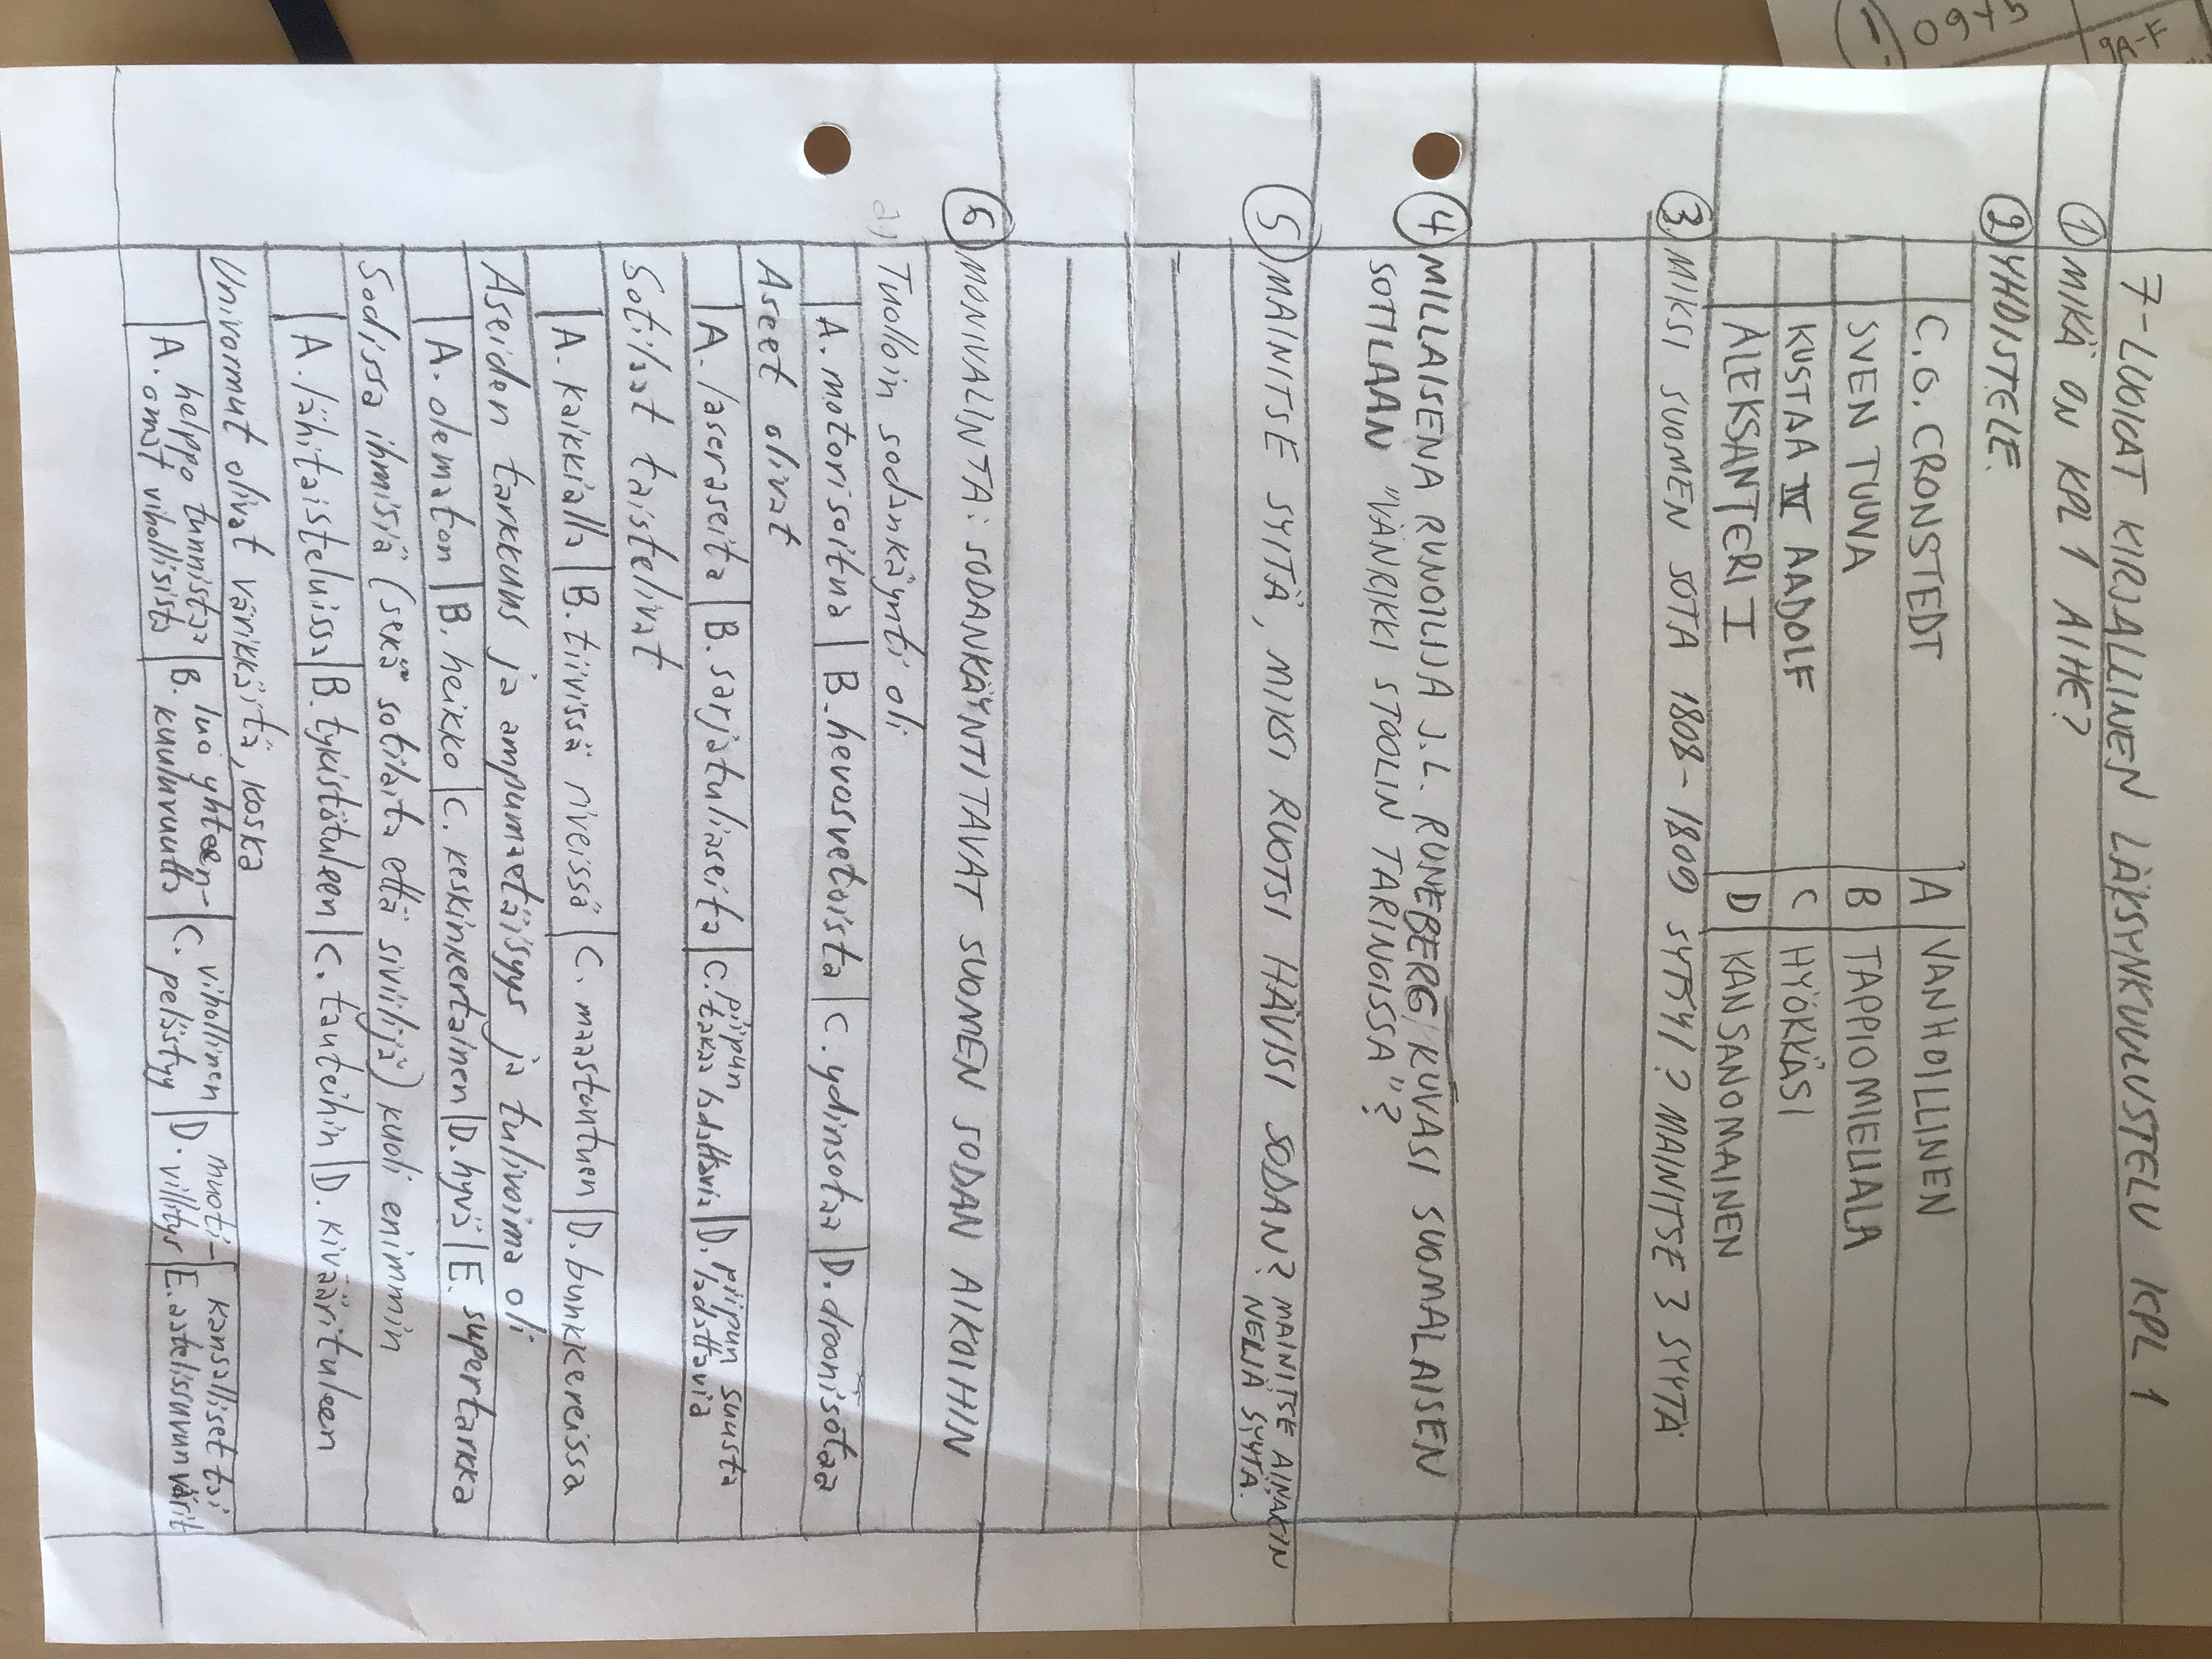 7-LUOKAT KIRJALLINEN LÄKSYNKUULUSTELU KPL 1
① MIKÄ ON KPL 1 AIHE?
② YHDISTELE.
C.O. CRONSTEDT | A | VANHOILLINEN
SVEN TUUVA | B | TAPPIOMIELIALA
KUSTAA IV AADOLF | C | HYÖKKÄSI
ALEKSANTERI I | D | KANSANOMAINEN
③ MIKSI SUOMEN SOTA 1808-1809 SYTTYI? MAINITSE 3 SYYTÄ
④ MILLAISENA RUNOILIJA J.L. RUNEBERG KUVASI SUOMALAISEN
SOTILAAN "VÄNRIKKI STOOLIN TARINOISSA"?
⑤ MAINITSE SYITÄ, MIKSI RUOTSI HÄVISI SODAN? MAINITSE AINAKIN
NELJÄ SYYTÄ.
⑥ MONIVALINTA: SODANKÄYNTITAVAT SUOMEN SODAN AIKOIHIN
a) Tuolloin sodankäynti oli
A. motorisoitua | B. hevosvetoista | C. ydinsotaa | D. droonisotaa
Aseet olivat
A. laseraseita | B. sarjatuliaseita | C. piipun takaa ladattavia | D. piipun suusta ladattavia
Sotilaat taistelivat
A. kaikkialla | B. tiiviissä riveissä | C. maastoutuen | D. bunkkereissa
Aseiden tarkkuus ja ampumaetäisyys ja tulivoima oli
A. olematon | B. heikko | C. keskinkertainen | D. hyvä | E. supertarkka
Sodissa ihmisiä (sekä sotilaita että siviilijä) kuoli enimmin
A. lähitaisteluissa | B. tykistötuleen | C. tauteihin | D. kiväärituleen
Univormut olivat värikkäitä, koska
A. helppo tunnistaa omat vihollisista | B. luo yhteen-kuuluvuutta | C. vihollinen pelästyy | D. muoti-villitys | E. kansalliset tai aatelissuvun värit
09+5
9A-F